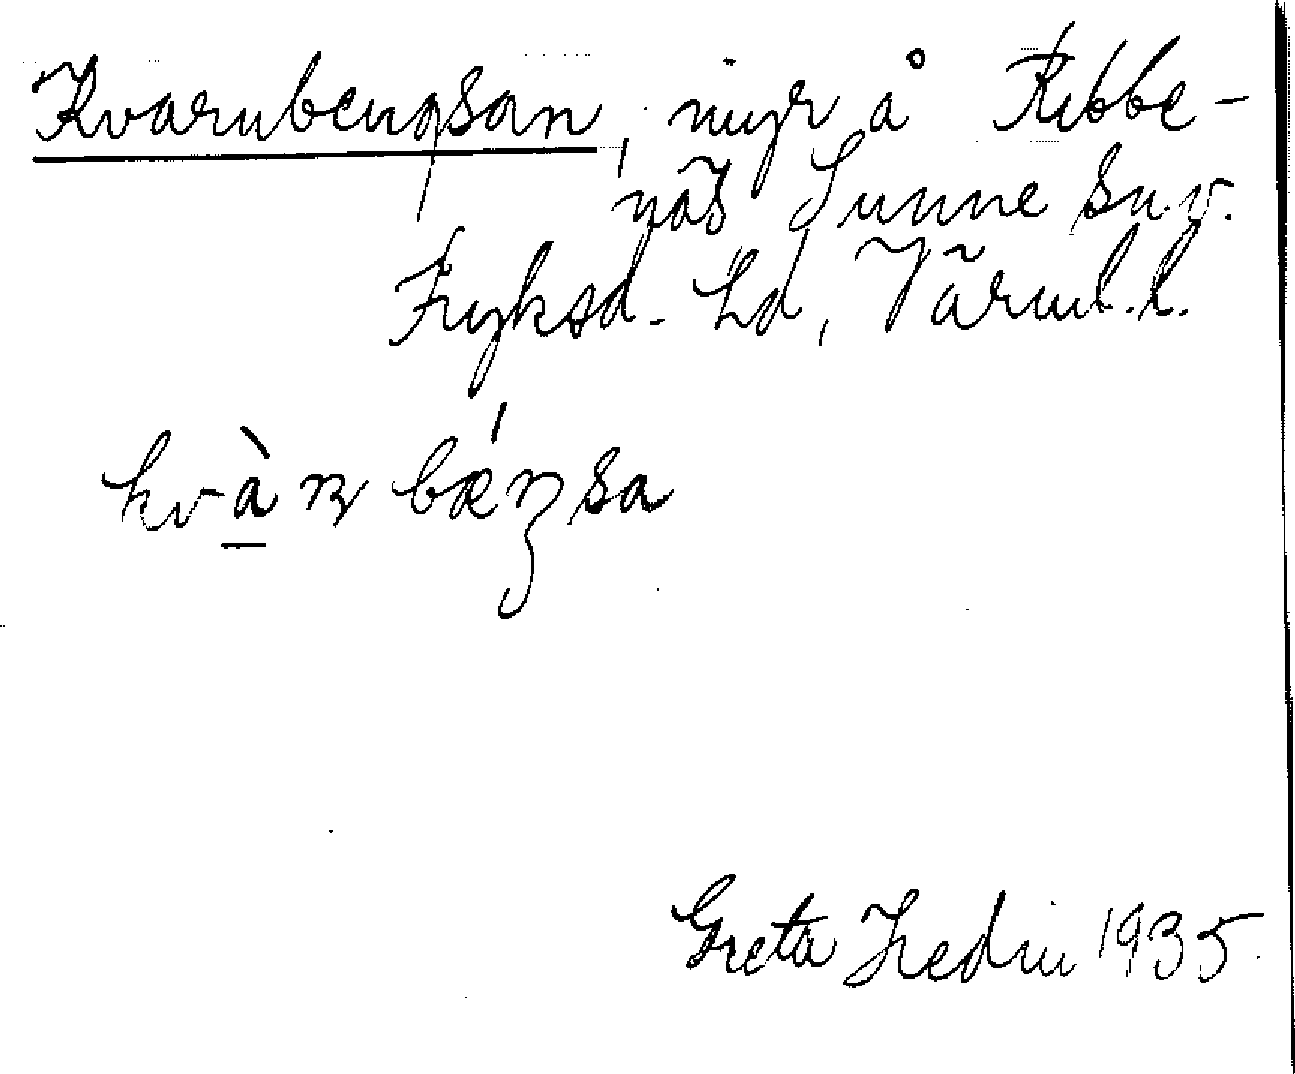 Kvarnbengsan, myr å Ribbe-
näs Sunne sn. v.
Fryksd. hd, Värml. l.
kvàn bǽŋsa
Greta Hedin 1935.